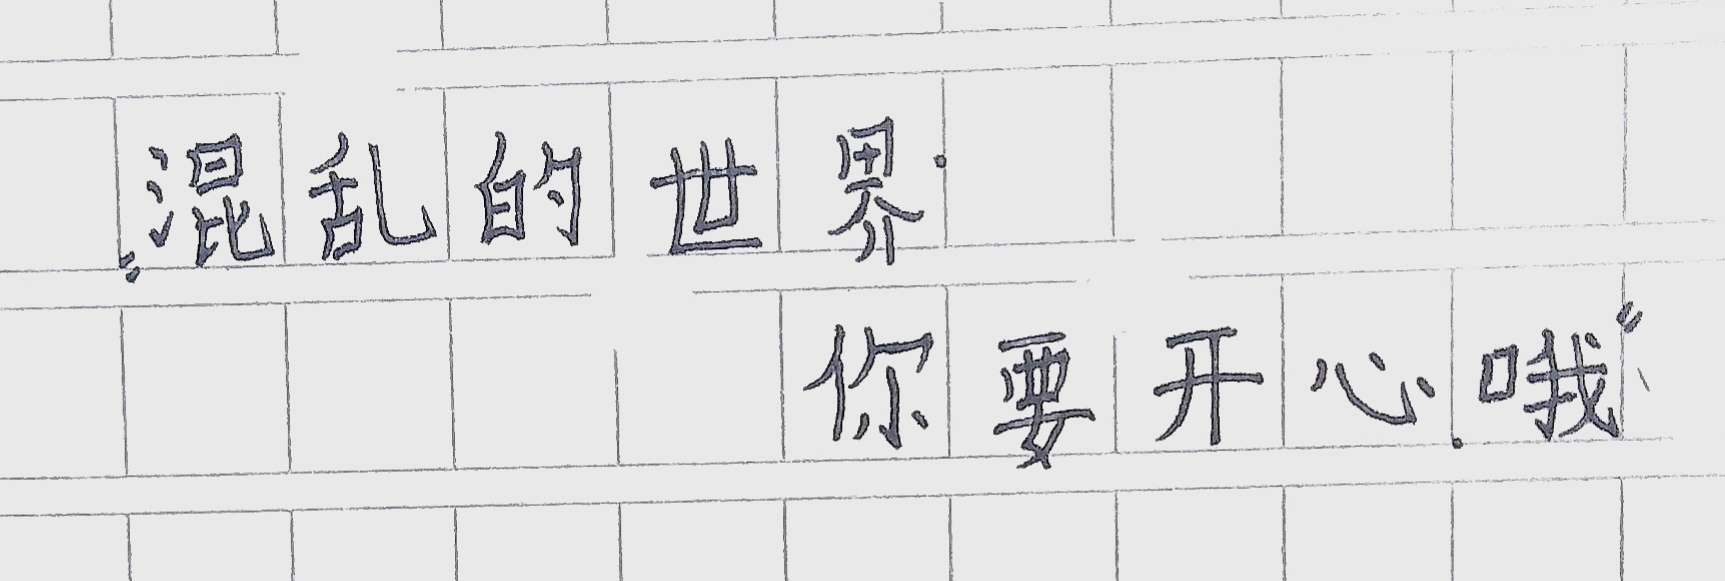 “混乱的世界.
你要开心.哦”